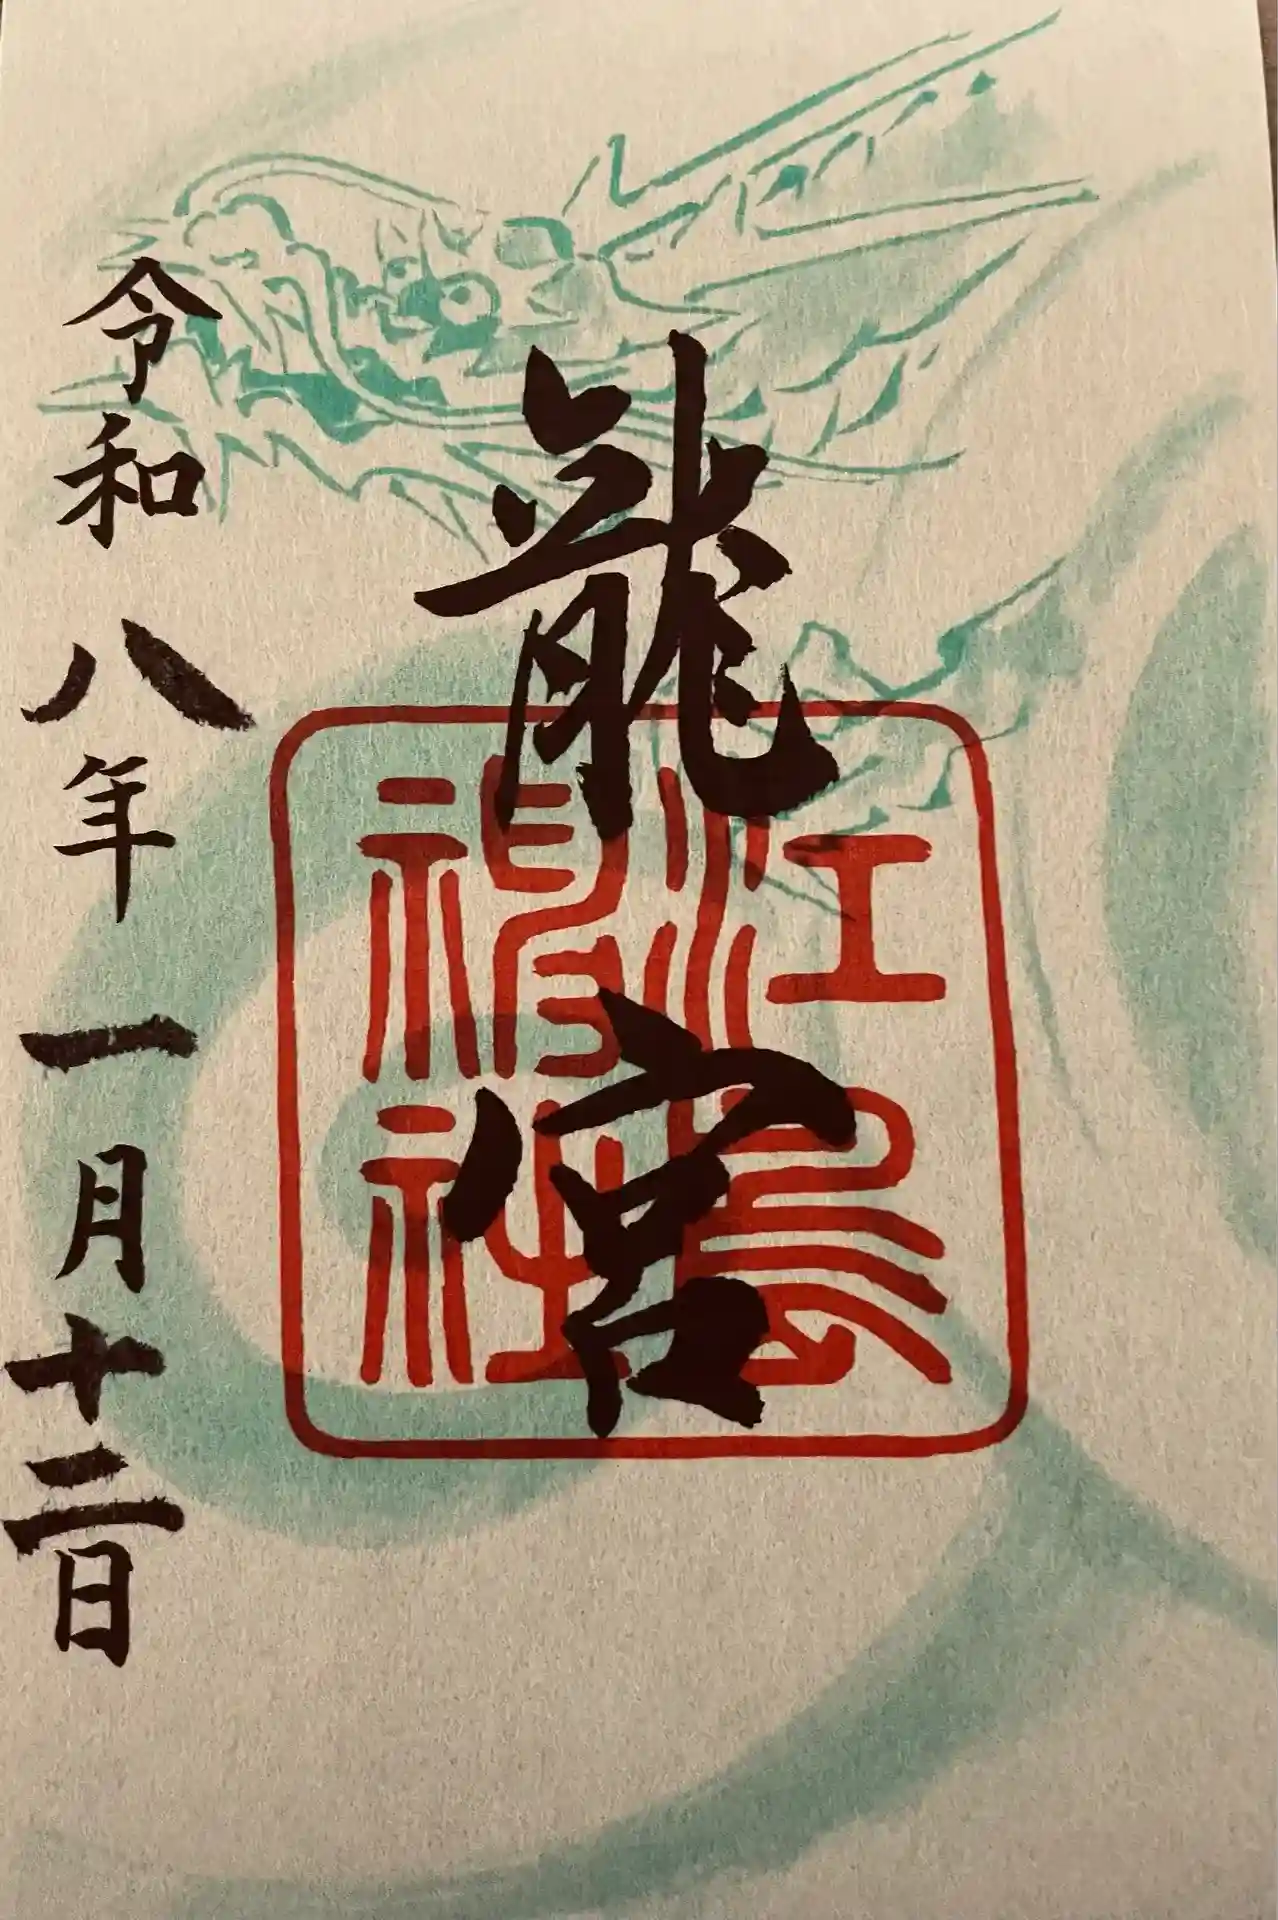 龍宮
江島神社
令和八年一月十二日